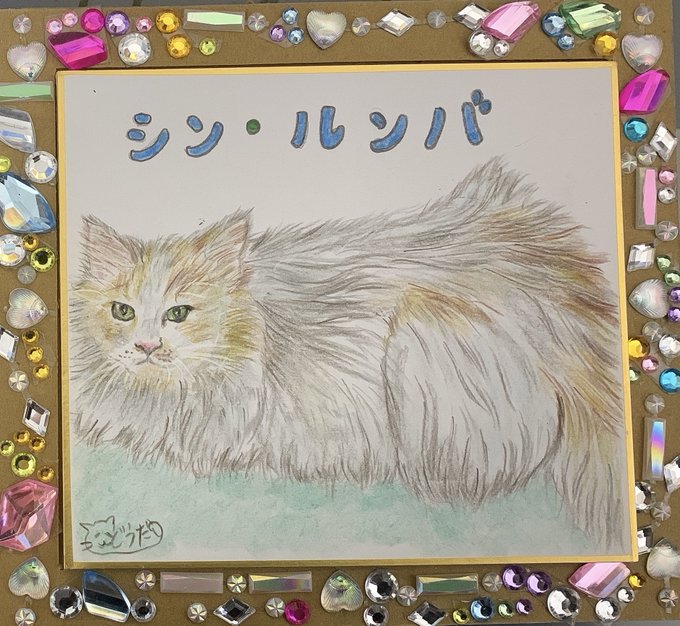 シン・ルンバ
どうだり